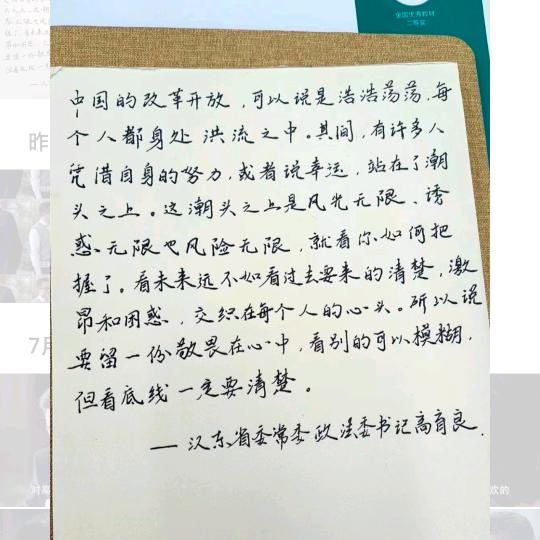 全国优秀教材
二等奖
昨
7月
中国的改革开放，可以说是浩浩荡荡，每
个人都身处洪流之中。其间，有许多人
凭借自身的努力，或者说幸运，站在了潮
头之上。这潮头之上是风光无限、诱
惑无限也风险无限，就看你如何把
握了。看未来远不如看过去要来的清楚，激
昂和困惑，交织在每个人的心头。所以说
要留一份敬畏在心中，看别的可以模糊，
但看底线一定要清楚。
— 汉东省委常委政法委书记高育良.
欢的